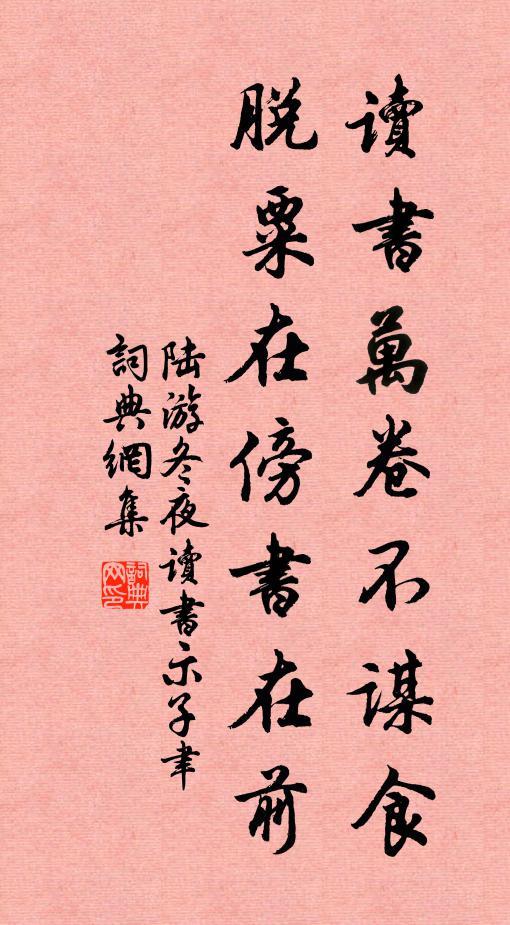 讀書萬卷不謀食
脱粟在傍書在前
陆游冬夜讀書示子聿
詞典網集
詞典网印